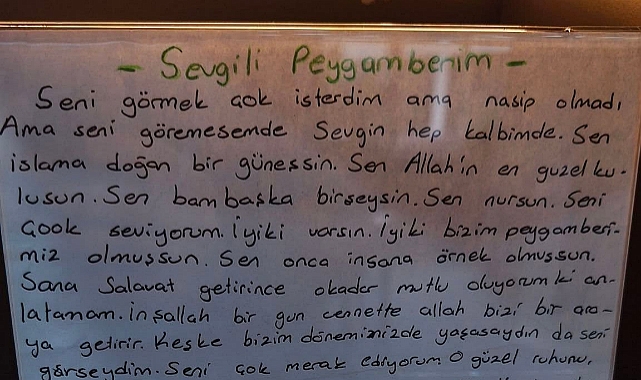 - Sevgili Peygamberim -
Seni görmek çok isterdim ama nasip olmadı
Ama seni göremesemde Sevgin hep kalbimde. Sen
islama doğan bir güneşsin. Sen Allah'in en guzel ku-
lusun. Sen bambaşka birseysin. Sen nursun. Seni
Çook seviyorum. İyiki varsın. İyiki bizim peygamberi-
miz olmuşsun. Sen onca insana örnek olmussun.
Sana Salavat getirince okadar mutlu oluyorum ki an-
latamam. İnşallah bir gun cennette allah bizi bir ara-
ya getirir. Keşke bizim dönemimizde yaşasaydın da seni
görseydim. Seni çok merak ediyorum. O güzel ruhunu,